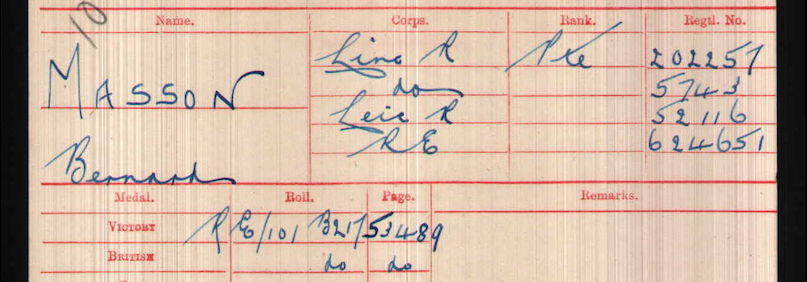 10
Name. Corps. Rank. Regtl. No.
MASSON Linc R Pte 202257
do 5743
Leic R 52116
RE 624651
Bernard
Medal. Roll. Page. Remarks.
VICTORY RE/101 B217 53489
BRITISH do do